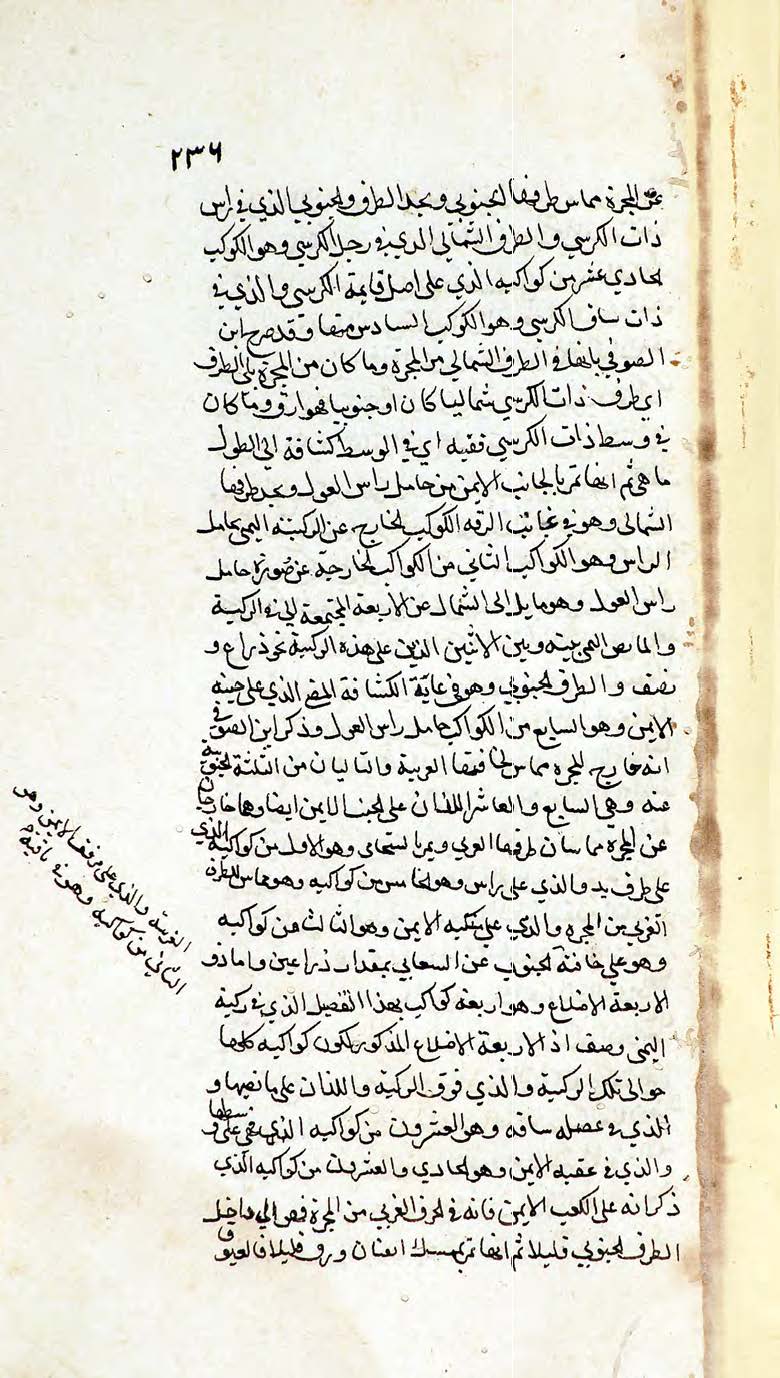 ٢٣٦
عن المجرة مماس طرفها الجنوبي ويحد الطرف والجنوبي الذي في راس
ذات الكرسي والطرف الشمالي الذي في رجل الكرسي وهو الكوكب
الحادي عشر من كواكبه الذي على اصل قايمة الكرسي والذي في
ذات ساق الكرسي وهو الكوكب السادس منها وقد صرح ابن
الصوفي بانها في الطرف الشمالي من المجرة وما كان من المجرة يلي الطرف
اي طرف ذات الكرسي شماليا كان او جنوبيا فهو ارق وما كان
في وسط ذات الكرسي ففيه اي في الوسط كثافة الى الطول
ما هي ثم انها تمر بالجانب الايمن من حامل راس الغول ويحد طرفها
الشمالي وهو في غاية الرقه الكوكب الخارج عن الركبة اليمنى بحامل
الراس وهو الكواكب الثاني من الكواكب الخارجة عن صورة حامل
راس الغول وهو مايل الى الشمال عن الاربعة المجتمعة التي في الركبة
والمابض اليمي بينه وبين الاثنين الذين على هذه الركبة نحو ذراع و
نصف والطرف الجنوبي وهو في غاية الكثافة المضي الذي على جنبه
الايمن وهو السابع من الكواكب حامل راس الغول وذكر ابن الصوفي
انه خارج المجرة مماس لحافتها الغربية والتاليان من الثلثة الجنوبية
عنه وهي السابع والعاشر اللذان على الجنب الايمن ايضا وهما خارجان
عن المجرة مماسان طرفها الغربي ويمر بالسحابي وهو الاول من كواكبه الذي
على طرف يد والذي على راس وهو الخامس من كواكبه وهو مماس للطرف
الغربي من المجره والذي على منكبه الايمن وهو الثالث من كواكبه
وهو على حافة الجنوب عن السحابي بمقدار ذراعين واما ذو
الاربعة الاضلاع وهو اربعة كواكب بهذا التفصيل الذي في ركبة
اليمنى وصف اذ الاربعة الاضلاع المذكور لكون كواكبه كلها
حوالى تلك الركبة والذي فوق الركبة واللذان على مابضها و
الذي في عضله ساقه وهو العشرون من كواكبه الذي هي على وسطها
والذي في عقبه الايمن وهو الحادي والعشرون من كواكبه الذي
ذكر انه على الكعب الايمن فانه في الحرف الغربي من المجرة فهو الى داخل
الطرف الجنوبي قليلا ثم انها تمر بممسك العنان ورق قليلا فالعيوق
الغربية والذي على مرفقه الايمن وهو
الثاني من كواكبه وهو في باقية